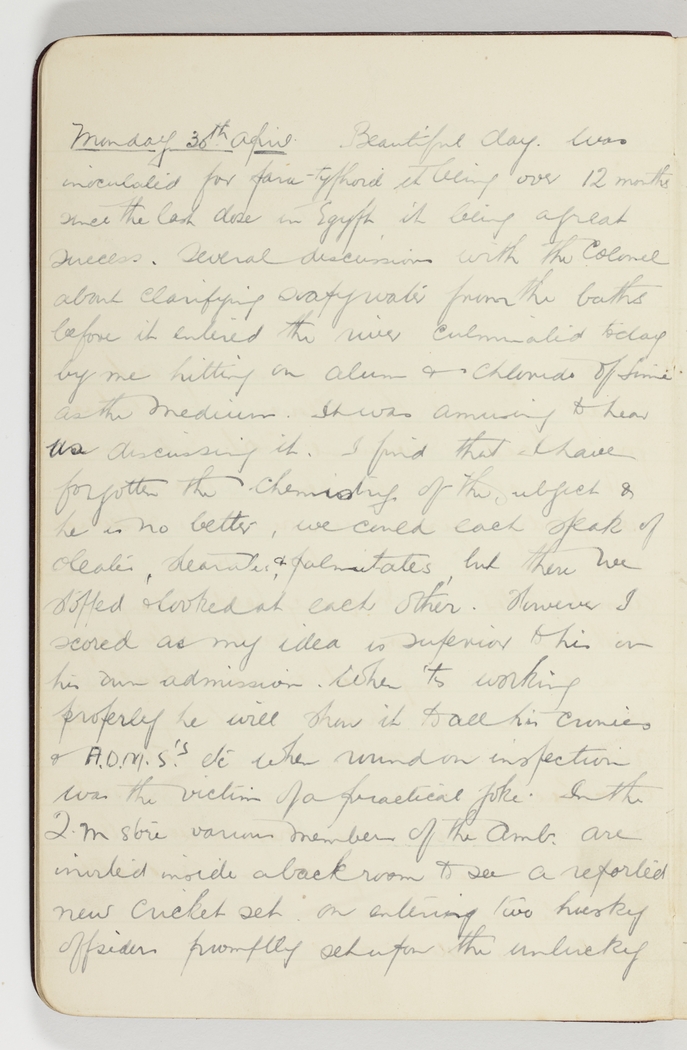 Monday 30th April. Beautiful day. Was
inoculated for para-typhoid it being over 12 months
since the last dose in Egypt it being a great
success. Several discussions with the Colonel
about clarifying soapy water from the baths
before it entered the river culminated today
by me hitting on alum & chloride of lime
as the medium. It was amusing to hear
us discussing it. I find that I have
forgotten the chemistry of the subject &
he is no better, we could each speak of
oleates, stearates, & palmitates, but there we
stopped & looked at each other. However I
scored as my idea is superior to his on
his own admission. When 'ts working
properly he will show it to all his cronies
& A.D.M.S.'s etc when round on inspection
was the victim of a practical joke. In the
Q.M store various members of the Amb. are
invited inside a back room to see a reported
new cricket set on entering two husky
offsiders promptly set upon the unlucky